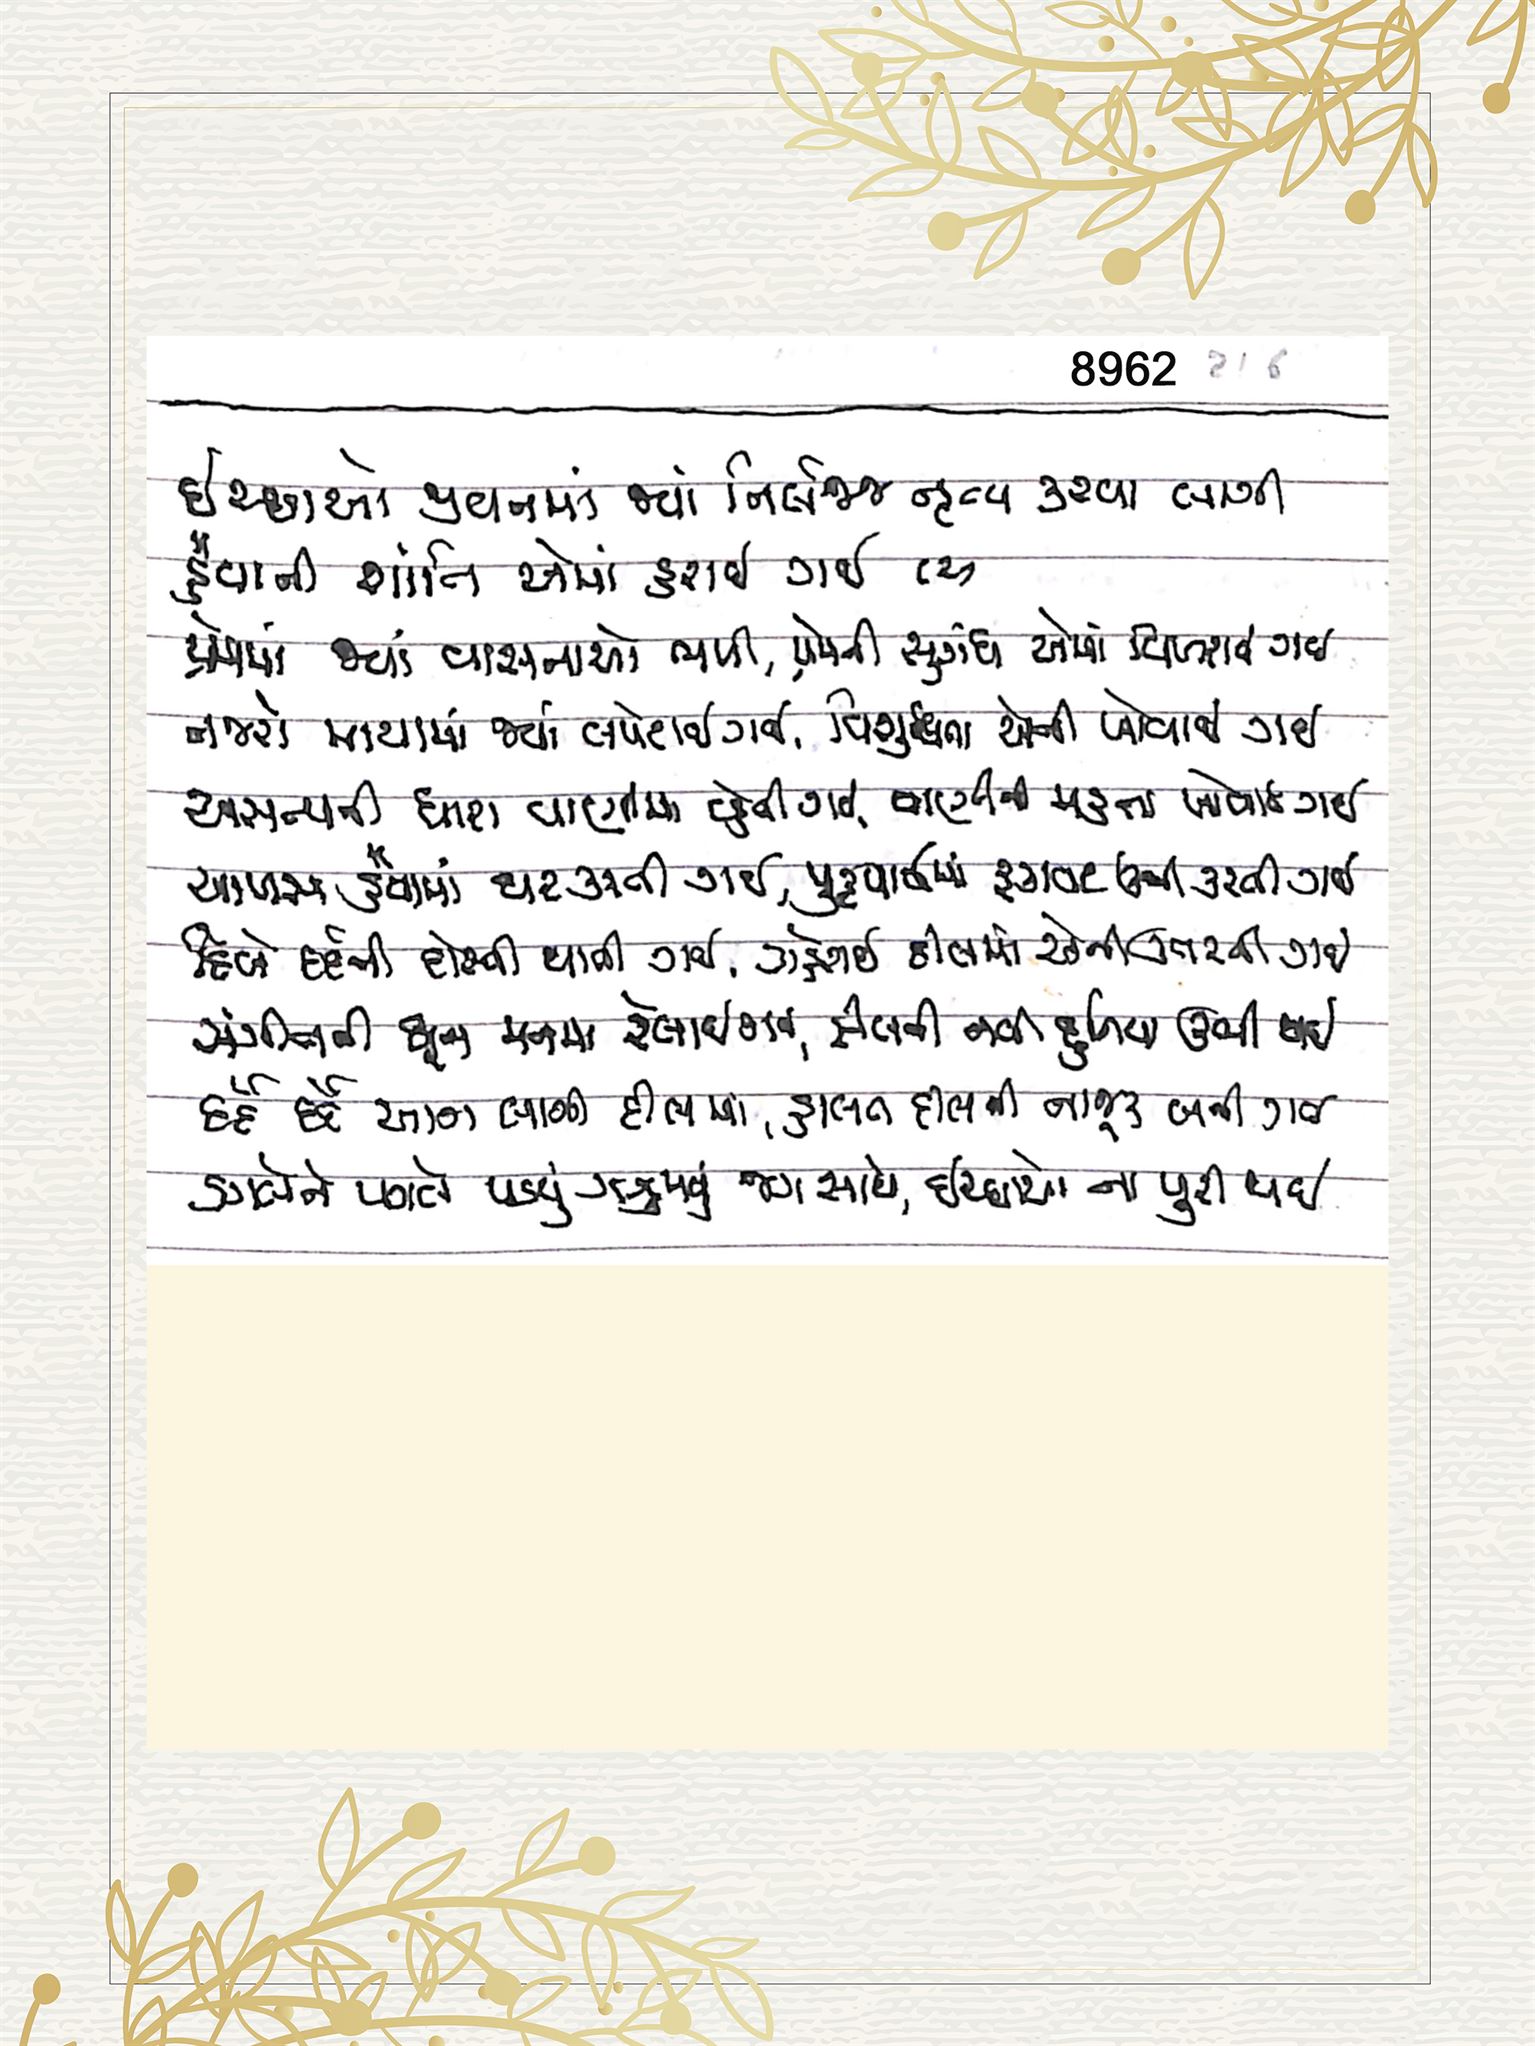 8962 216
ઇચ્છાઓ જીવનમાં જ્યાં નિર્લજ્જ નૃત્ય કરવા લાગી
હૈયાની શાંતિ એમાં હરાઈ ગઈ
પ્રેમમાં જ્યાં વાસનાઓ ભળી, પ્રેમની સુગંધ એમાં વિખરાઈ ગઈ
નજરો માયામાં જ્યાં લપેટાઈ ગઈ, વિશુદ્ધતા એની ખોવાઈ ગઈ
અસત્યની ધારા વાણીમાં વહેતી ગઈ, વાણીની મક્કમતા ખોવાઈ ગઈ
આળસ હૈયામાં ઘર કરતી ગઈ, પુરુષાર્થમાં રુકાવટ ઊભી કરતી ગઈ
દિલે દર્દની દોસ્તી થાતી ગઈ, ગહેરાઈ દીલમાં એની ઉતરતી ગઈ
સંગીતની ધૂન મનમાં રેલાઈ ગઈ, દીલની નવી દુનિયા ઊભી થઈ
દર્દે દર્દે આગ લાગી દીલમાં, હાલત દીલની નાજૂક બની ગઈ
ડગલેને પગલે પડયું ઝઝુમવું જગ સાથે, ઇચ્છાઓ ના પુરી થઈ